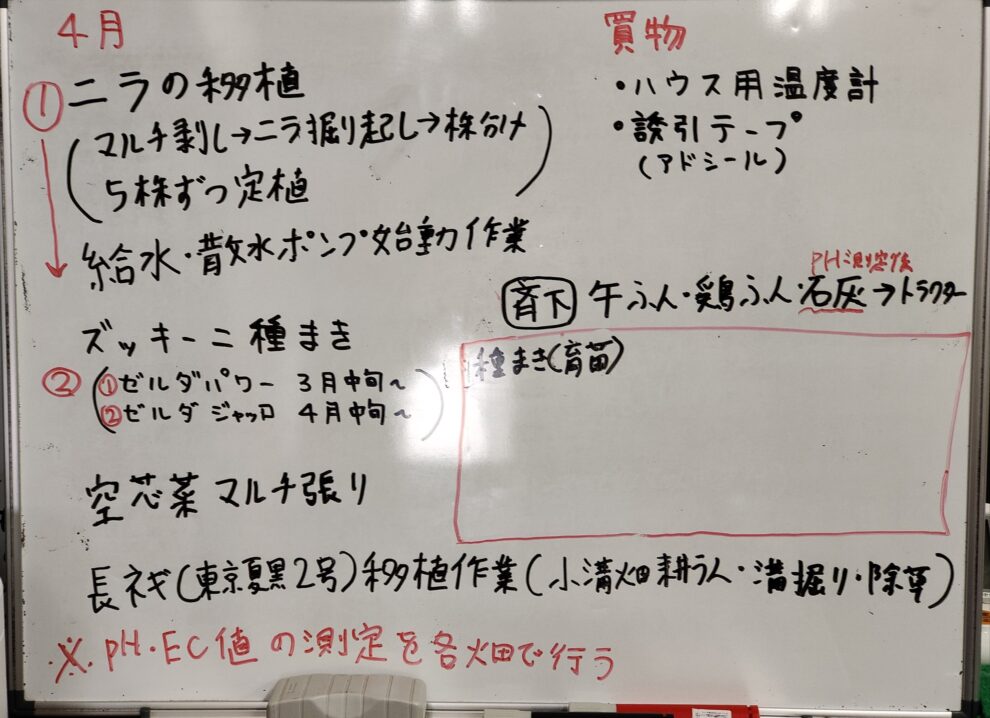 4月
① ニラの移植
(マルチ剥し→ニラ掘り起し→株分け
5株ずつ定植)
給水・散水ポンプ始動作業
ズッキーニ種まき
② (①ゼルダパワー 3月中旬~
②ゼルダジャッロ 4月中旬~)
空芯菜マルチ張り
長ネギ(東京夏黒2号)移植作業(小溝畑耕うん・溝掘り・除草)
※pH・EC値の測定を各畑で行う
買物
・ハウス用温度計
・誘引テープ
(アドシール)
pH測定後
斉下 牛ふん・鶏ふん・石灰→トラクター
種まき(育苗)